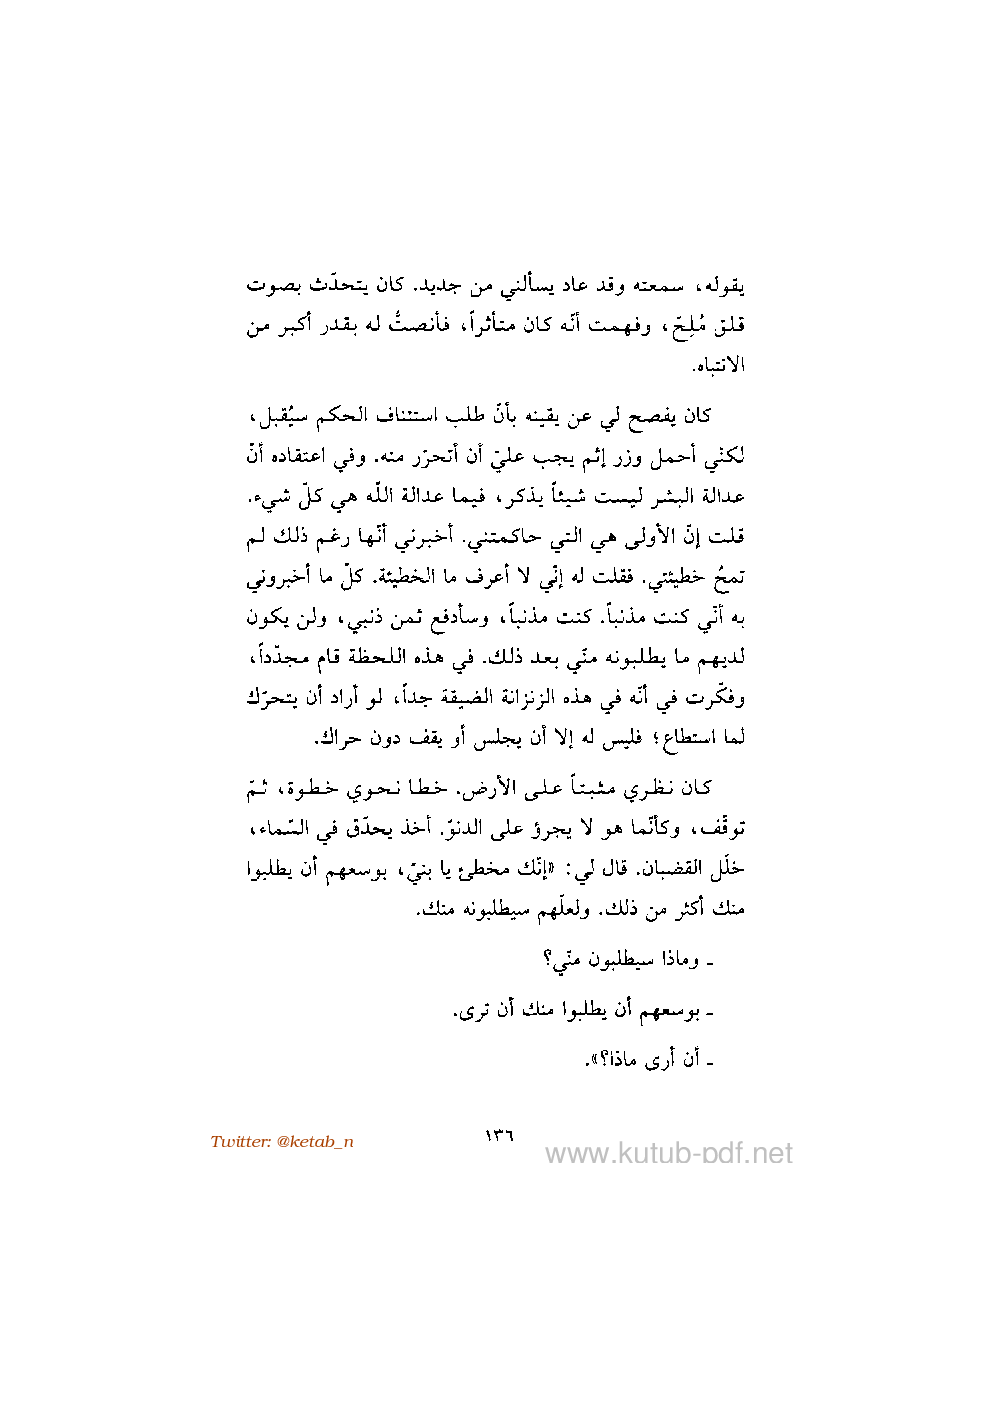 يقوله، سمعته وقد عاد يسألني من جديد. كان يتحدّث بصوت
قلق مُلِحّ، وفهمت أنّه كان متأثراً، فأنصتُّ له بقدر أكبر من
الانتباه.
كان يفصح لي عن يقينه بأنّ طلب استئناف الحكم سيُقبل،
لكنّي أحمل وزر إثم يجب عليّ أن أتحرّر منه. وفي اعتقاده أنّ
عدالة البشر ليست شيئاً يذكر، فيما عدالة اللّه هي كلّ شيء.
قلت إنّ الأولى هي التي حاكمتني. أخبرني أنّها رغم ذلك لم
تمحُ خطيئتي. فقلت له إنّي لا أعرف ما الخطيئة. كلّ ما أخبروني
به أنّي كنت مذنباً. كنت مذنباً، وسأدفع ثمن ذنبي، ولن يكون
لديهم ما يطلبونه منّي بعد ذلك. في هذه اللحظة قام مجدّداً،
وفكّرت في أنّه في هذه الزنزانة الضيقة جداً، لو أراد أن يتحرّك
لما استطاع؛ فليس له إلا أن يجلس أو يقف دون حراك.
كان نظري مثبتاً على الأرض. خطا نحوي خطوة، ثمّ
توقّف، وكأنّما هو لا يجرؤ على الدنوّ. أخذ يحدّق في السّماء،
خلَل القضبان. قال لي: «إنّك مخطئ يا بنيّ، بوسعهم أن يطلبوا
منك أكثر من ذلك. ولعلّهم سيطلبونه منك.
ـ وماذا سيطلبون منّي؟
ـ بوسعهم أن يطلبوا منك أن ترى.
ـ أن أرى ماذا؟».
Twitter: @ketab_n
١٣٦
www.kutub-pdf.net